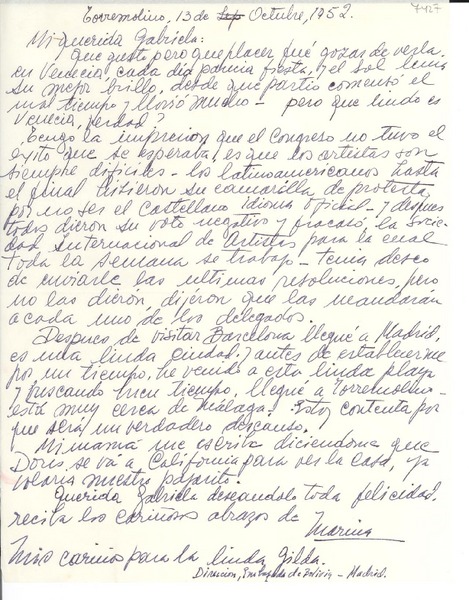 7427
Torremolino, 13 de Sep Octubre, 1952.
Mi querida Gabriela:
Que gusto pero que placer fué gozar de verla
en Venecia, cada dia para mi fiesta, y el sol tenia
su mejor brillo, desde que partió comentó el
mal tiempo y llovió mucho - pero que linda es
Venecia, verdad?
Tengo la impresion que el Congreso no tuvo el
éxito que se esperaba, es que los artistas son
siempre dificiles - los latinoamericanos hasta
el final hizieron su camarilla de protesta
por no ser el Castellano idioma oficial - y despues
todos dieron su voto negativo y fracasó, la Socie-
dad Internacional de Artistas para la cual
toda la semana se trabajo - tenia deseo
de enviarle las ultimas resoluciones, pero
no las dieron, dijeron que las mandarán
a cada uno de los delegados.
Despues de visitar Barcelona llegué a Madrid,
es una linda ciudad, y antes de establecerme
por un tiempo, he venido a esta linda playa
y buscando buen tiempo, llegué a Torremolino
está muy cerca de Málaga. Estoy contenta por
que será un verdadero descanso.
Mi mamá me escribe diciendome que
Doris se vá a California para ver la casa, ya
volará nuestro pajarito.
Querida Gabriela deseandole toda felicidad,
reciba los cariñosos abrazos de
Marina
Mis cariños para la linda Gilda.
Direccion, Embajada de Bolivia - Madrid.